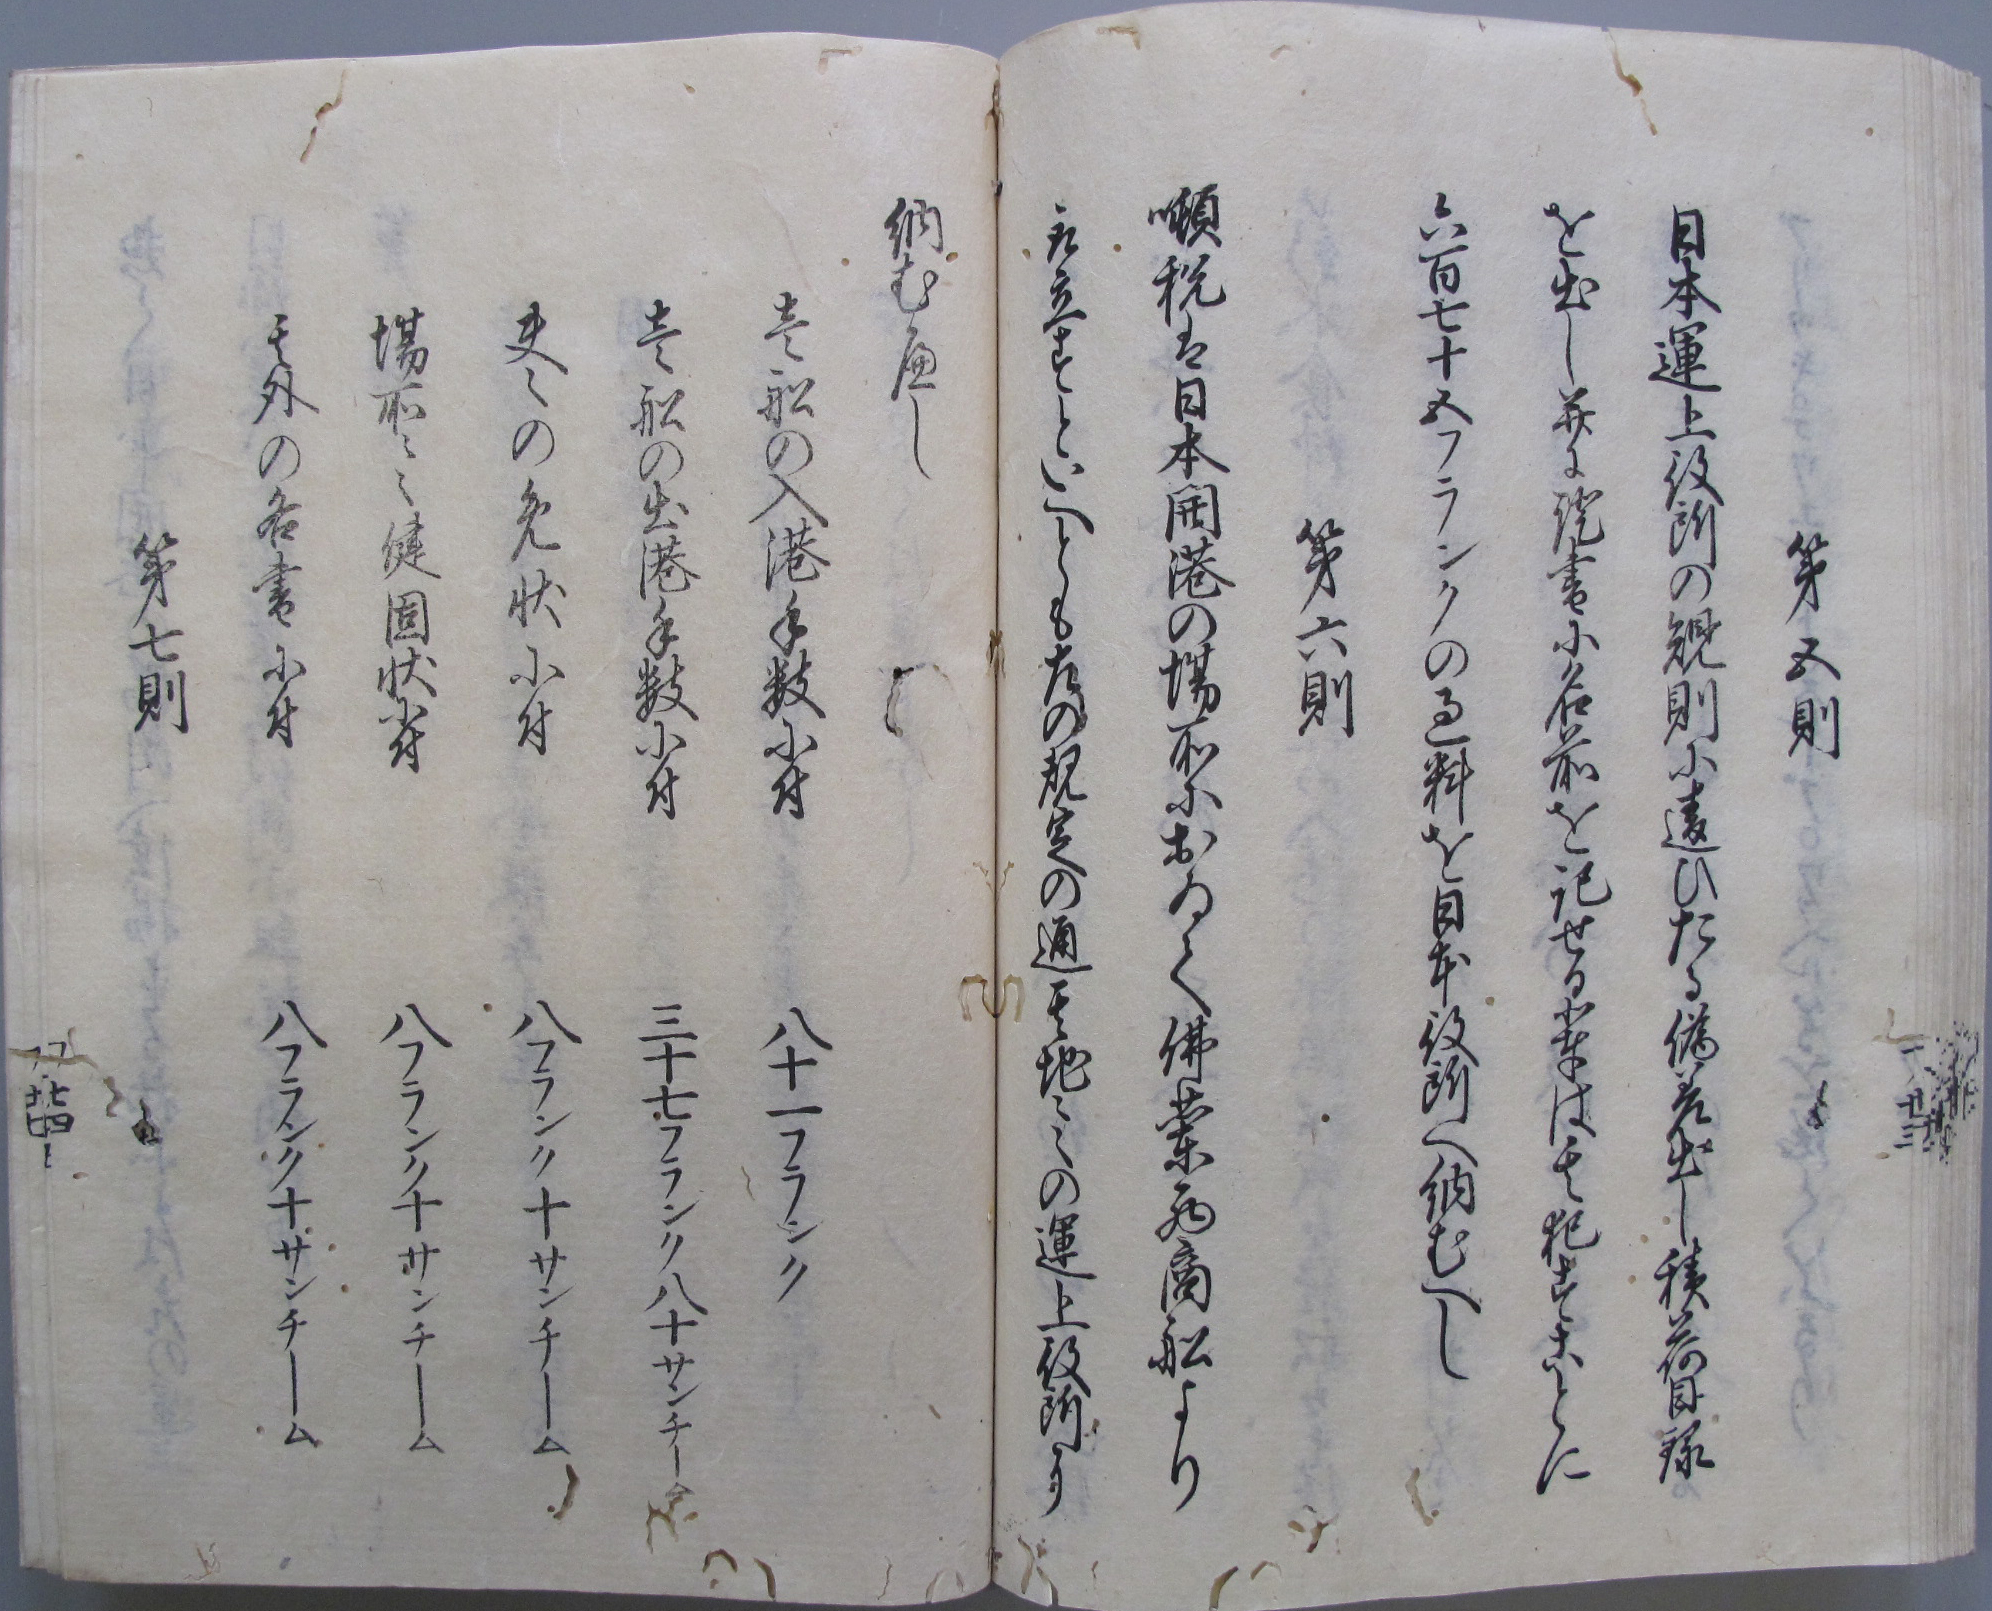 第五則
日本運上役所の規則に違ひたる偽差出し積荷目録
を出し并に證書に名前を記せる非事は其犯すことに
六百七十五フランクの過料を日本役所へ納むへし
第六則
噸税は日本開港の場所におゐて佛蘭西商船より
取立すといへとも左の規定の通其地々々の運上役所に
納む邊し
壱船の入港手数に付 八十一フランク
壱船の出港手数に付 三十七フランク八十サンチーム
夫々の免状に付 八フランク十サンチーム
場所々々健固状に付 八フランク十サンチーム
其外の各書に付 八フランク十サンチーム
第七則